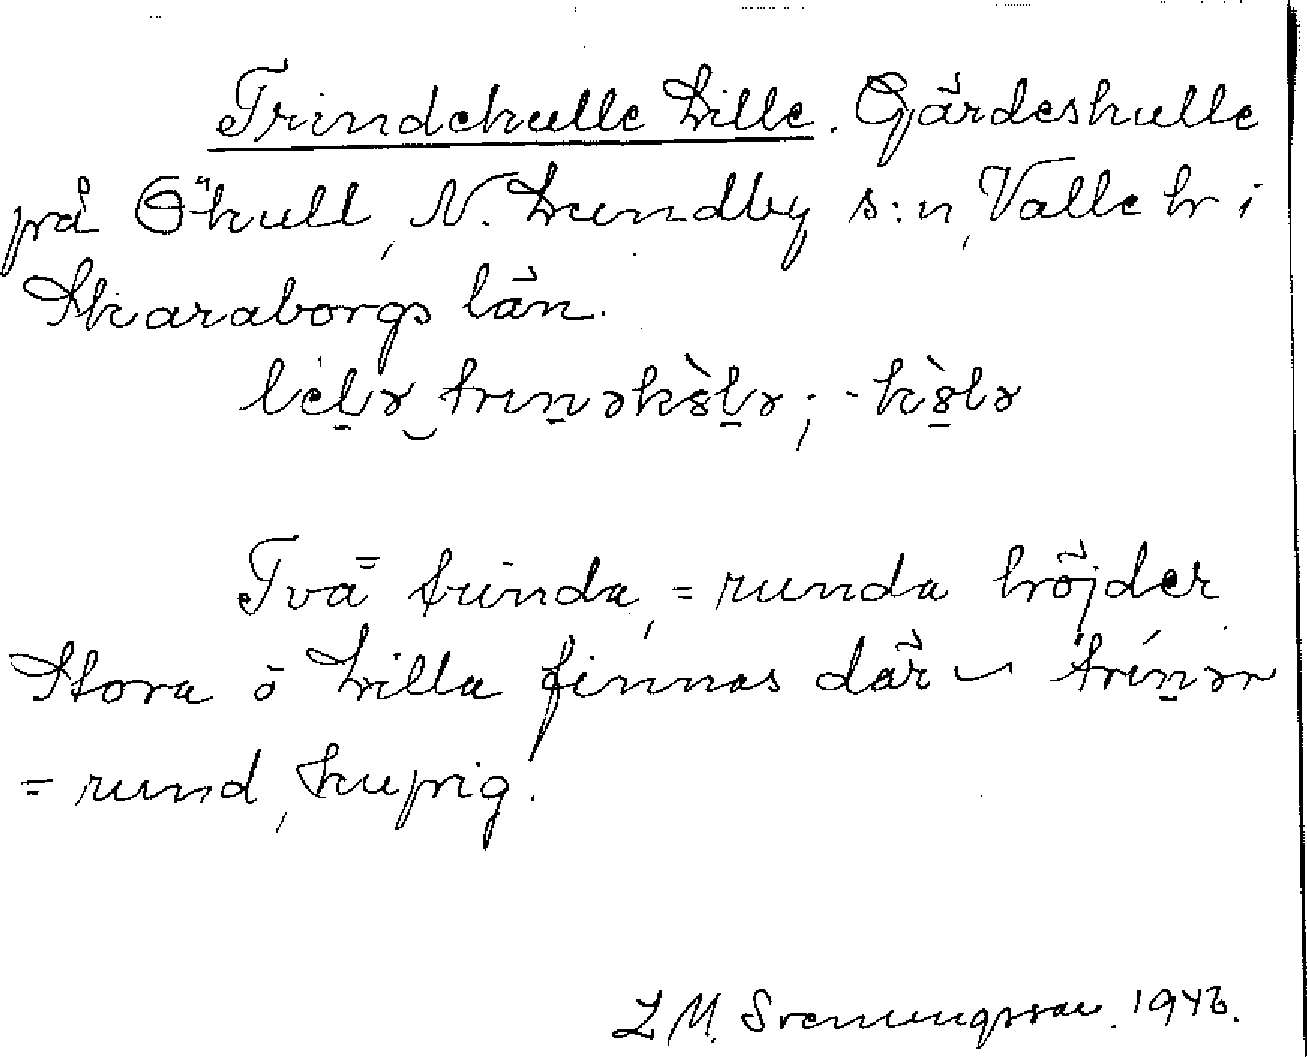 Trindekulle Lille. Gärdeskulle
på Ökull, N. Lundby s:n, Valle hr i
Skaraborgs län.
Två trinda, = runda höjder
Stora o Lilla finnas där
= rund, kupig.
L M. Svenungsson. 1946.